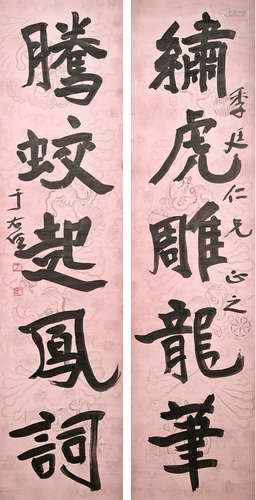 繡虎雕龍筆
季廷仁兄正之
騰蛟起鳳詞
于右任